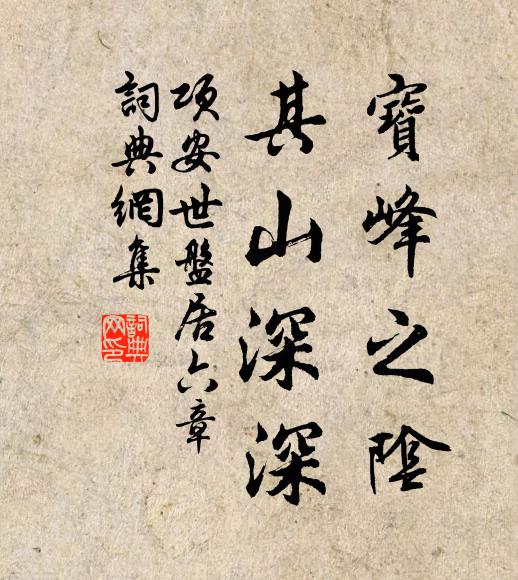 寶峰之陰
其山深深
項安世盤居六章
詞典網集
詞典
网印